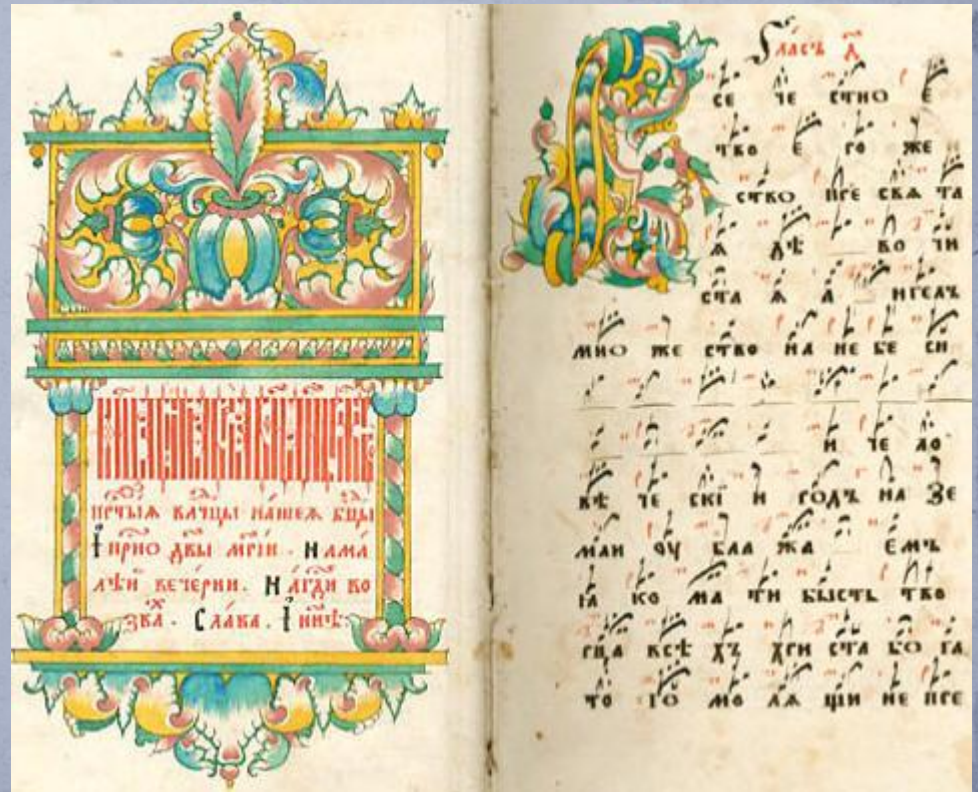 прⷭ҇тыѧ влⷣчцы нашеѧ бцⷣы
І приⷭ҇но дв҃ы мр҃іи . На ма
лѣй вечерни . На гдⷭ҇и во
звⷯа . Слава . І нн҃ѣ:
Гласъ
В се че стно е
тво е ро же
ство пре свѧ та
ѧ дѣ во чи
ста ѧ а нгелъ
мно же ство на не бе си
и че ло
вѣ че скі и родъ на зе
мли оу бла жа емъ
ꙗ ко ма ти бысть тво
рца всѣ хъ хри ста бо га
то го мо лѧ щи не пре